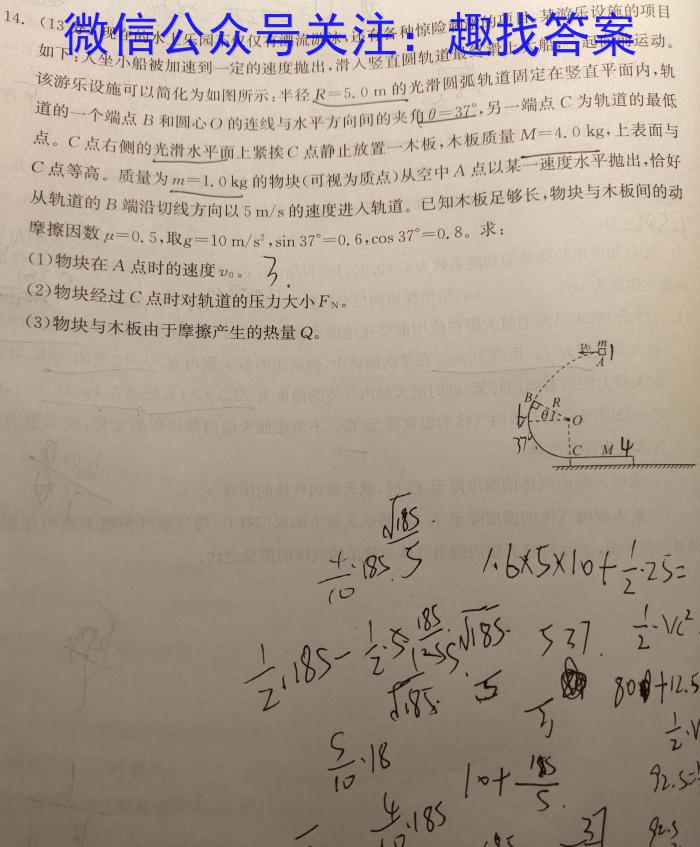 微信公众号关注：趣找答案
14. (13分)现在的水上乐园不仅仅有漂流游泳,还有各种惊险刺激的项目,某游乐设施的项目
如下:人坐小船被加速到一定的速度抛出,滑入竖直圆轨道最终滑上 一起向前运动。
该游乐设施可以简化为如图所示:半径R=5.0 m的光滑圆弧轨道固定在竖直平面内,轨
道的一个端点B和圆心O的连线与水平方向间的夹角θ=37°,另一端点C为轨道的最低
点。C点右侧的光滑水平面上紧挨C点静止放置一木板,木板质量M=4.0 kg,上表面与
C点等高。质量为m=1.0 kg的物块(可视为质点)从空中A点以某一速度水平抛出,恰好
从轨道的B端沿切线方向以5 m/s的速度进入轨道。已知木板足够长,物块与木板间的动
摩擦因数μ=0.5,取g=10 m/s²,sin 37°=0.6,cos 37°=0.8。求:
(1)物块在A点时的速度v₀。 3.
(2)物块经过C点时对轨道的压力大小F_N。
(3)物块与木板由于摩擦产生的热量Q。
v₀ m 1
A
B R
θ O
37°
C M 4
√185
4/10·185 5
1.6×5×10+1/2·25=
1/2·185-1/2·5·185/125 √185
537.
1/2·Vc²
√185. 5
80+12.5
5/10·18
10+185/5.
1/2·V
92.5=
4/10·185
37
92.5